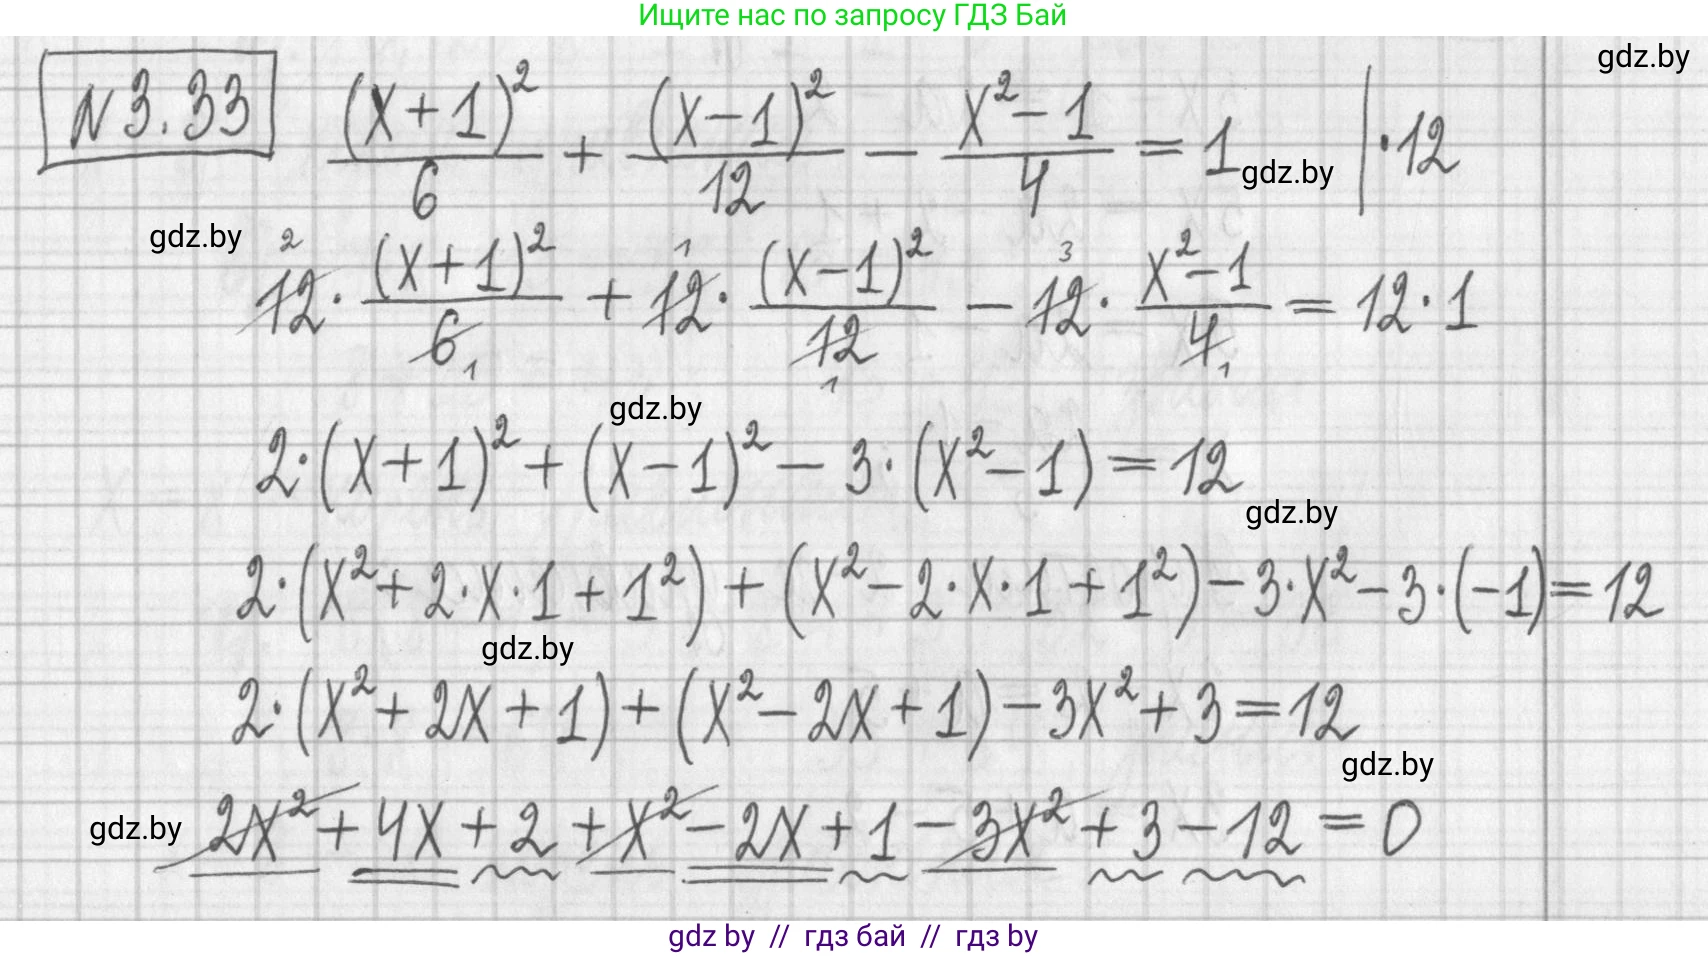 Ищите нас по запросу ГДЗ Бай
gdz.by
N 3.33 (x+1)²/6 + (x-1)²/12 - (x²-1)/4 = 1 | ·12
gdz.by
gdz.by
12 · (x+1)²/6 + 12 · (x-1)²/12 - 12 · (x²-1)/4 = 12 · 1
2 1 3
1 1 1
gdz.by
2·(x+1)² + (x-1)² - 3·(x²-1) = 12
gdz.by
2·(x²+2·x·1+1²) + (x²-2·x·1+1²) - 3·x² - 3·(-1) = 12
gdz.by
2·(x²+2x+1) + (x²-2x+1) - 3x² + 3 = 12
gdz.by
gdz.by
2x² + 4x + 2 + x² - 2x + 1 - 3x² + 3 - 12 = 0
gdz by // гдз бай // гдз by